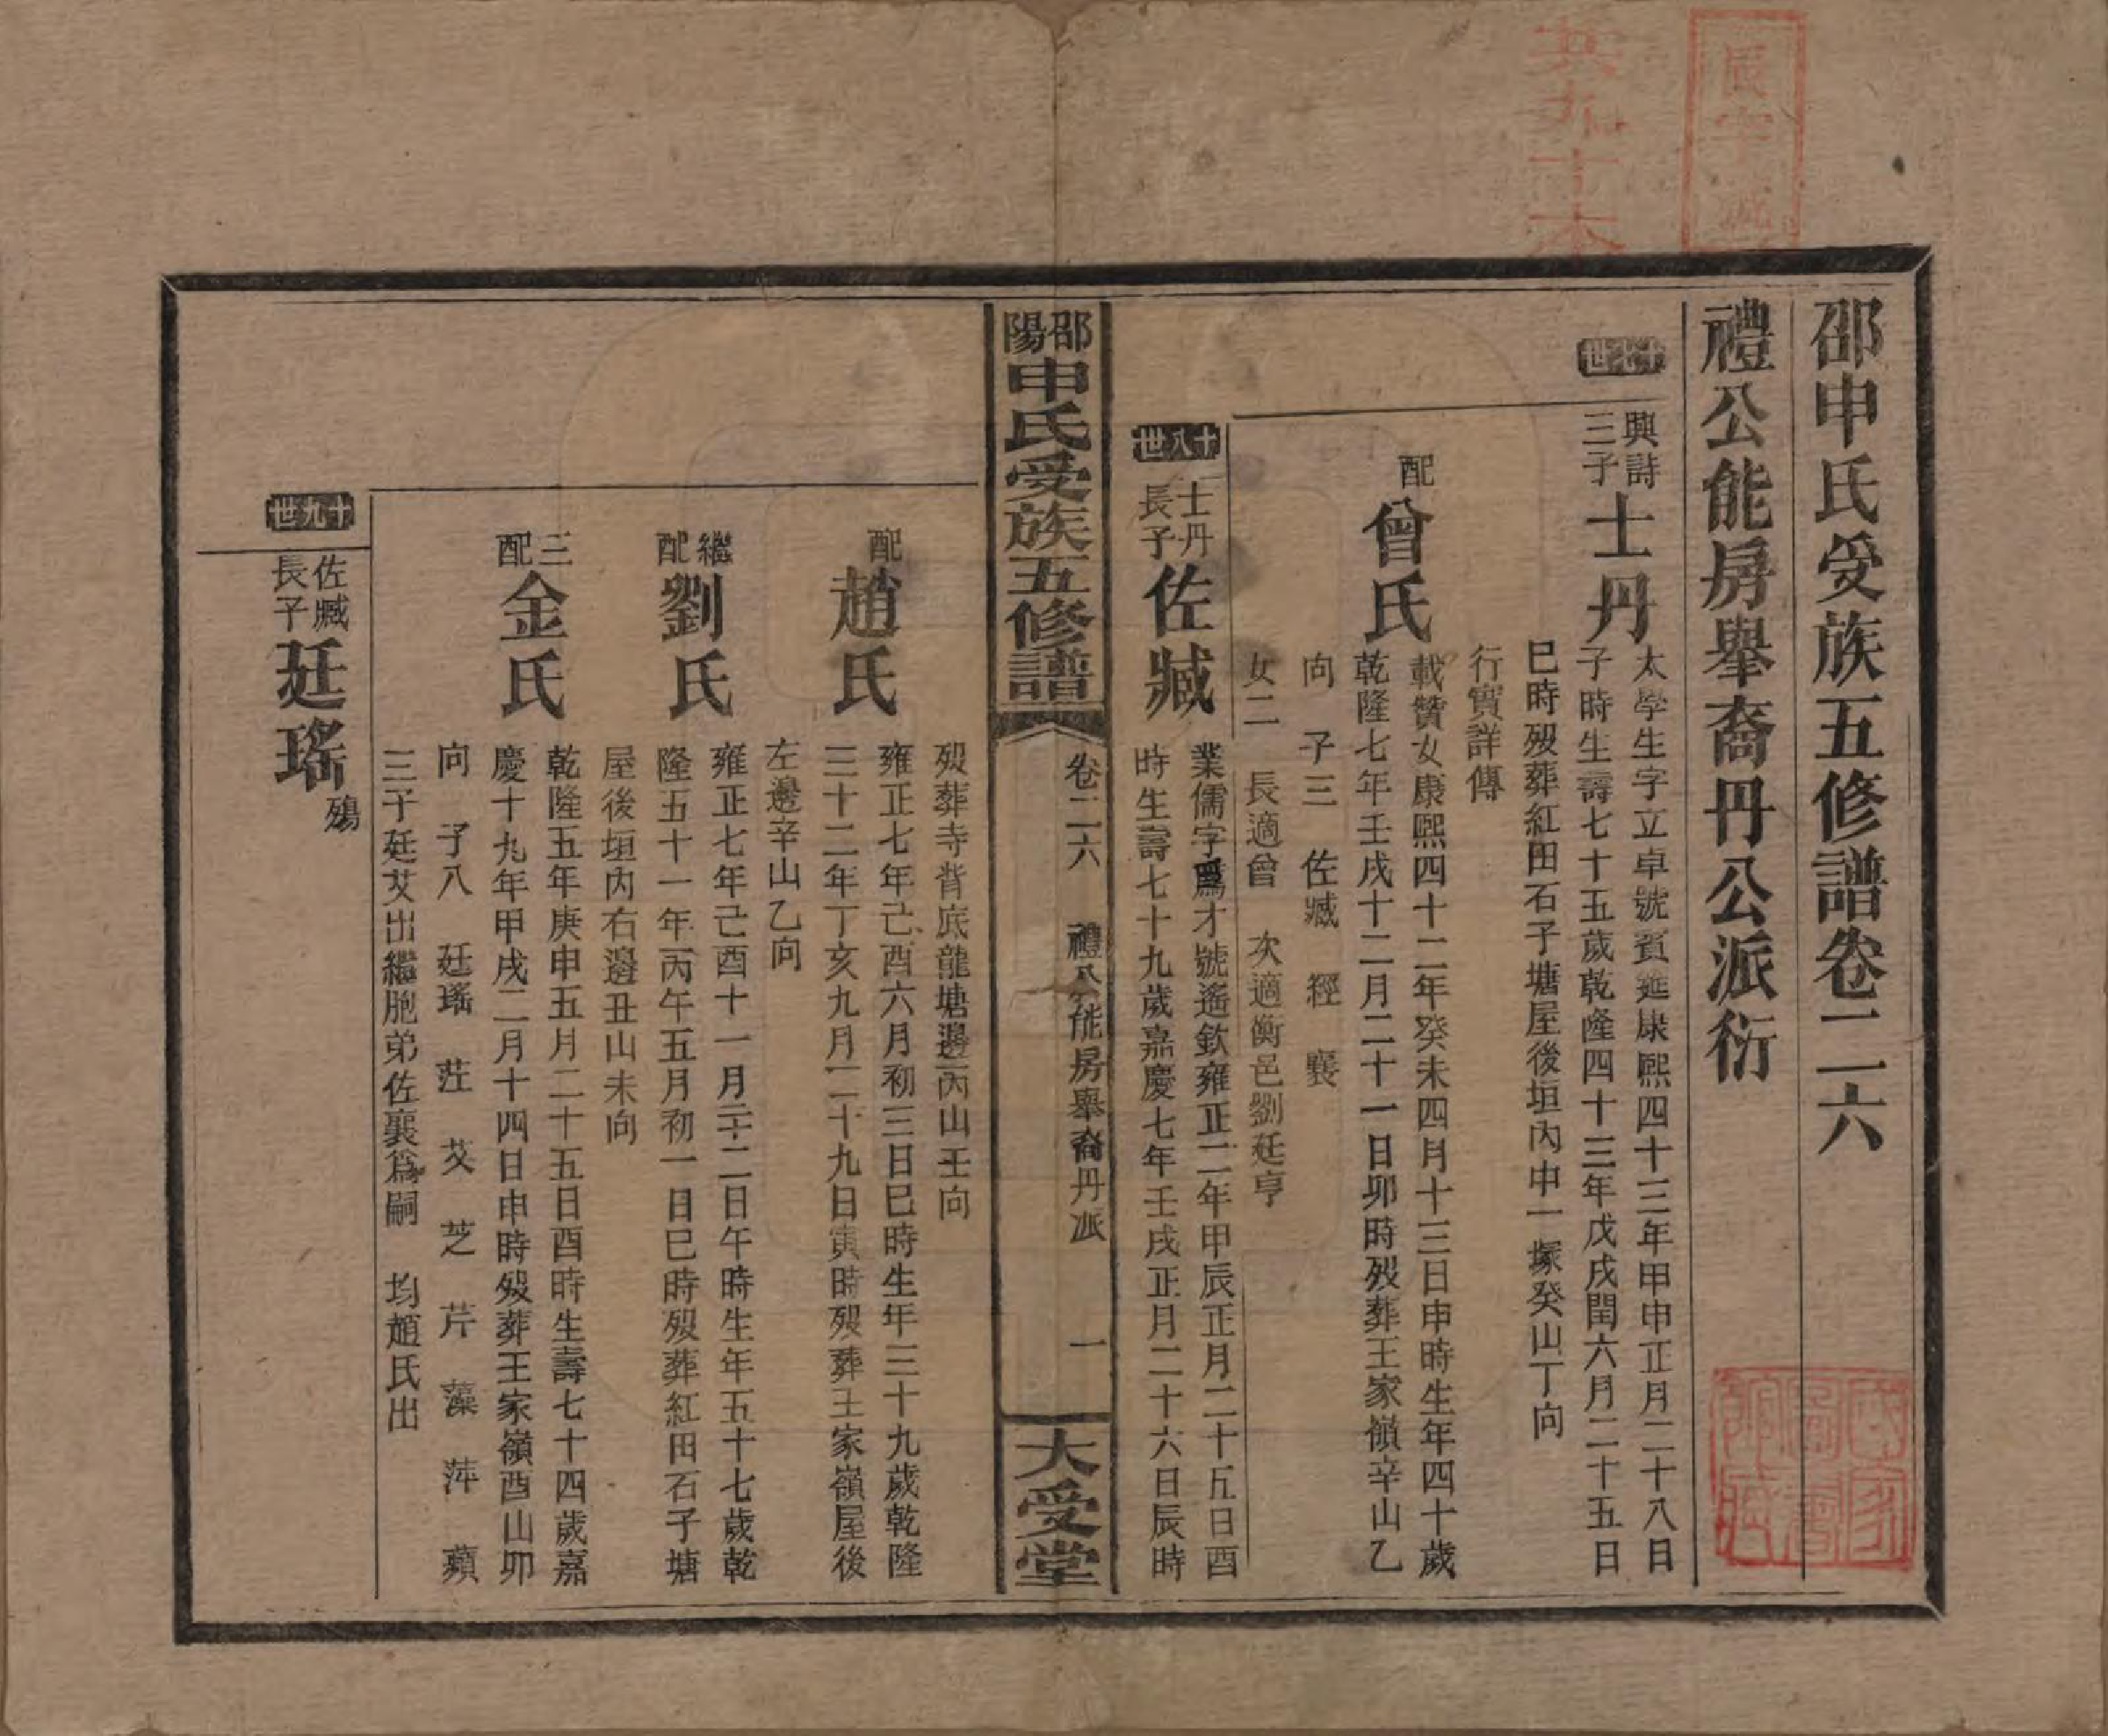 邵申氏受族五修譜卷二六
禮公能房舉裔丹公派衍
十七世
興詩三子
士丹
太學生字立卓號賓筵康熙四十三年甲申正月二十八日
子時生壽七十五歲乾隆四十三年戊戌閏六月二十五日
巳時歿葬紅田石子塘屋後垣內申一塚癸山丁向
行實詳傳
配曾氏
載贊女康熙四十二年癸未四月十三日申時生年四十歲
乾隆七年壬戌十二月二十一日卯時歿葬王家嶺辛山乙
向 子三 佐臧 經 襄
女二 長適曾 次適衡邑劉廷亨
十八世
士丹長子
佐臧
業儒字爲才號遙欽雍正二年甲辰正月二十五日酉
時生壽七十九歲嘉慶七年壬戌正月二十六日辰時
邵陽申氏受族五修譜
卷二六 禮公能房舉裔丹派 一
大受堂
歿葬寺背底龍塘邊丙山壬向
配趙氏
雍正七年己酉六月初三日巳時生年三十九歲乾隆
三十二年丁亥九月二十九日寅時歿葬王家嶺屋後
左邊辛山乙向
繼配劉氏
雍正七年己酉十一月二十二日午時生年五十七歲乾
隆五十一年丙午五月初一日巳時歿葬紅田石子塘
屋後垣內右邊丑山未向
三配金氏
乾隆五年庚申五月二十五日酉時生壽七十四歲嘉
慶十九年甲戌二月十四日申時歿葬王家嶺酉山卯
向 子八 廷瑤 莊 艾 芝 芹 藻 萍 蘋
三子廷艾出繼胞弟佐襄爲嗣 均趙氏出
十九世
佐臧長子
廷瑤
殤